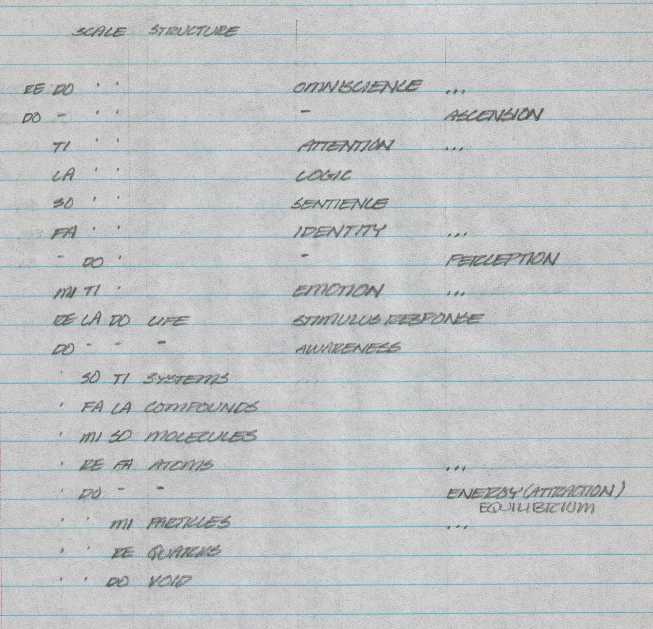 SCALE STRUCTURE
RE DO ' ' OMNISCIENCE ...
DO - ' ' - ASCENSION
TI ' ' ATTENTION ...
LA ' ' LOGIC
SO ' ' SENTIENCE
FA ' IDENTITY ...
- DO ' - PERCEPTION
MI TI ' EMOTION ...
RE LA DO LIFE STIMULUS RESPONSE
DO - - - AWARENESS
' SO TI SYSTEMS
' FA LA COMPOUNDS
' MI SO MOLECULES
' RE FA ATOMS ...
' DO - - ENERGY (ATTRACTION)
EQUILIBRIUM
' ' MI PARTICLES ...
' ' RE QUARKS
' ' DO VOID